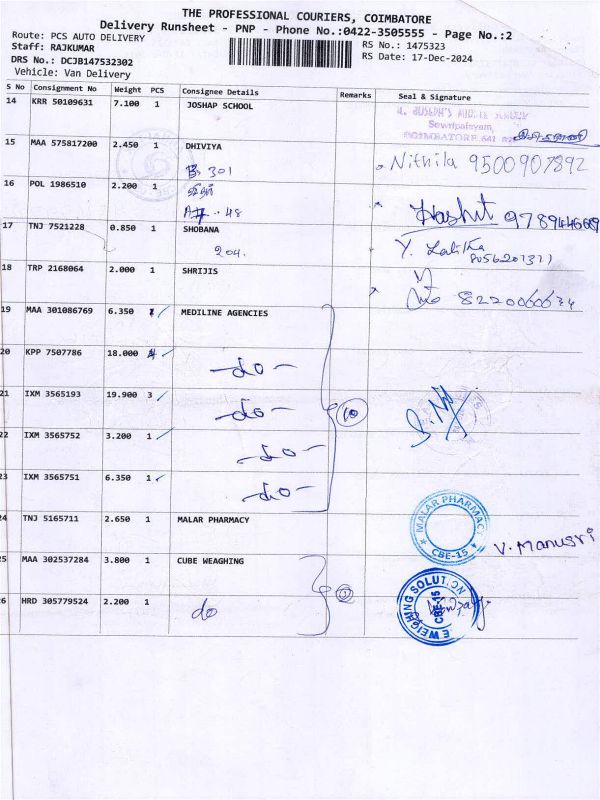 THE PROFESSIONAL COURIERS, COIMBATORE
Delivery Runsheet - PNP - Phone No.:0422-3505555 - Page No.:2
Route: PCS AUTO DELIVERY
RS No.: 1475323
Staff: RAJKUMAR
RS Date: 17-Dec-2024
DRS No.: DCJB147532302
Vehicle: Van Delivery
S No Consignment No Weight PCS Consignee Details Remarks Seal & Signature
14 KRR 50109631 7.100 1 JOSHAP SCHOOL
Sowripalayam,
COIMBATORE-641
15 MAA 575817200 2.450 1 DHIVIYA
B 301 Nithila 9500907892
16 POL 1986510 2.200 1
48 Hashit
17 TNJ 7521228 0.850 1 SHOBANA
204. Y. Lalitha
18 TRP 2168064 2.000 1 SHRIJIS
19 MAA 301086769 6.350 MEDILINE AGENCIES
20 KPP 7507786 18.000 4
-do-
21 IXM 3565193 19.900 3
-do- 10
22 IXM 3565752 3.200 1
-do-
23 IXM 3565751 6.350 1
-do-
24 TNJ 5165711 2.650 1 MALAR PHARMACY
MALAR PHARMACY
CBE-15
V. Manusri
25 MAA 302537284 3.800 1 CUBE WEAGHING
26 HRD 305779524 2.200 1
do
E WEIGHING SOLUTION
CBE-15